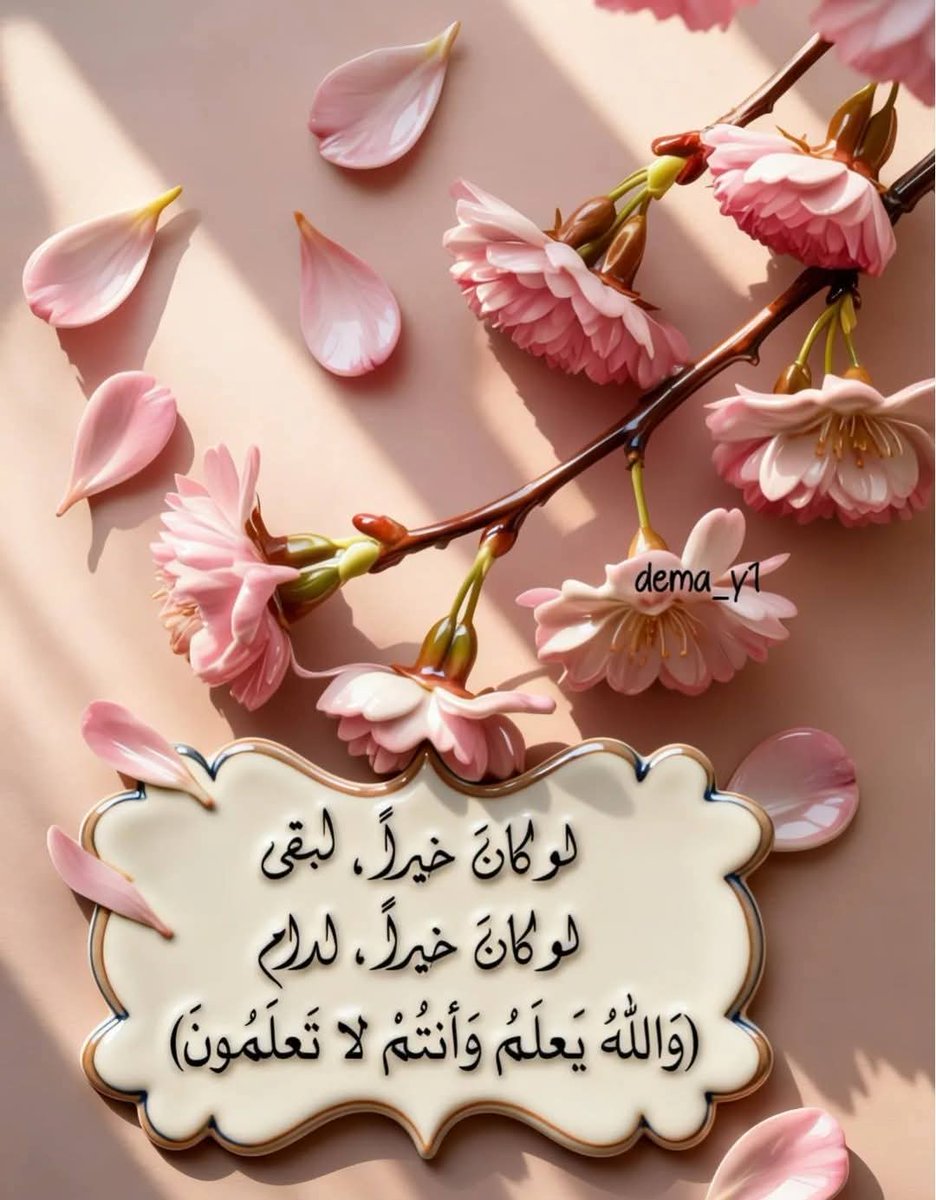 dema_y1
لو كانَ خيراً، لبقى
لو كانَ خيراً، لدام
(وَاللهُ يَعلَمُ وَأنتُمْ لا تَعلَمُونَ)